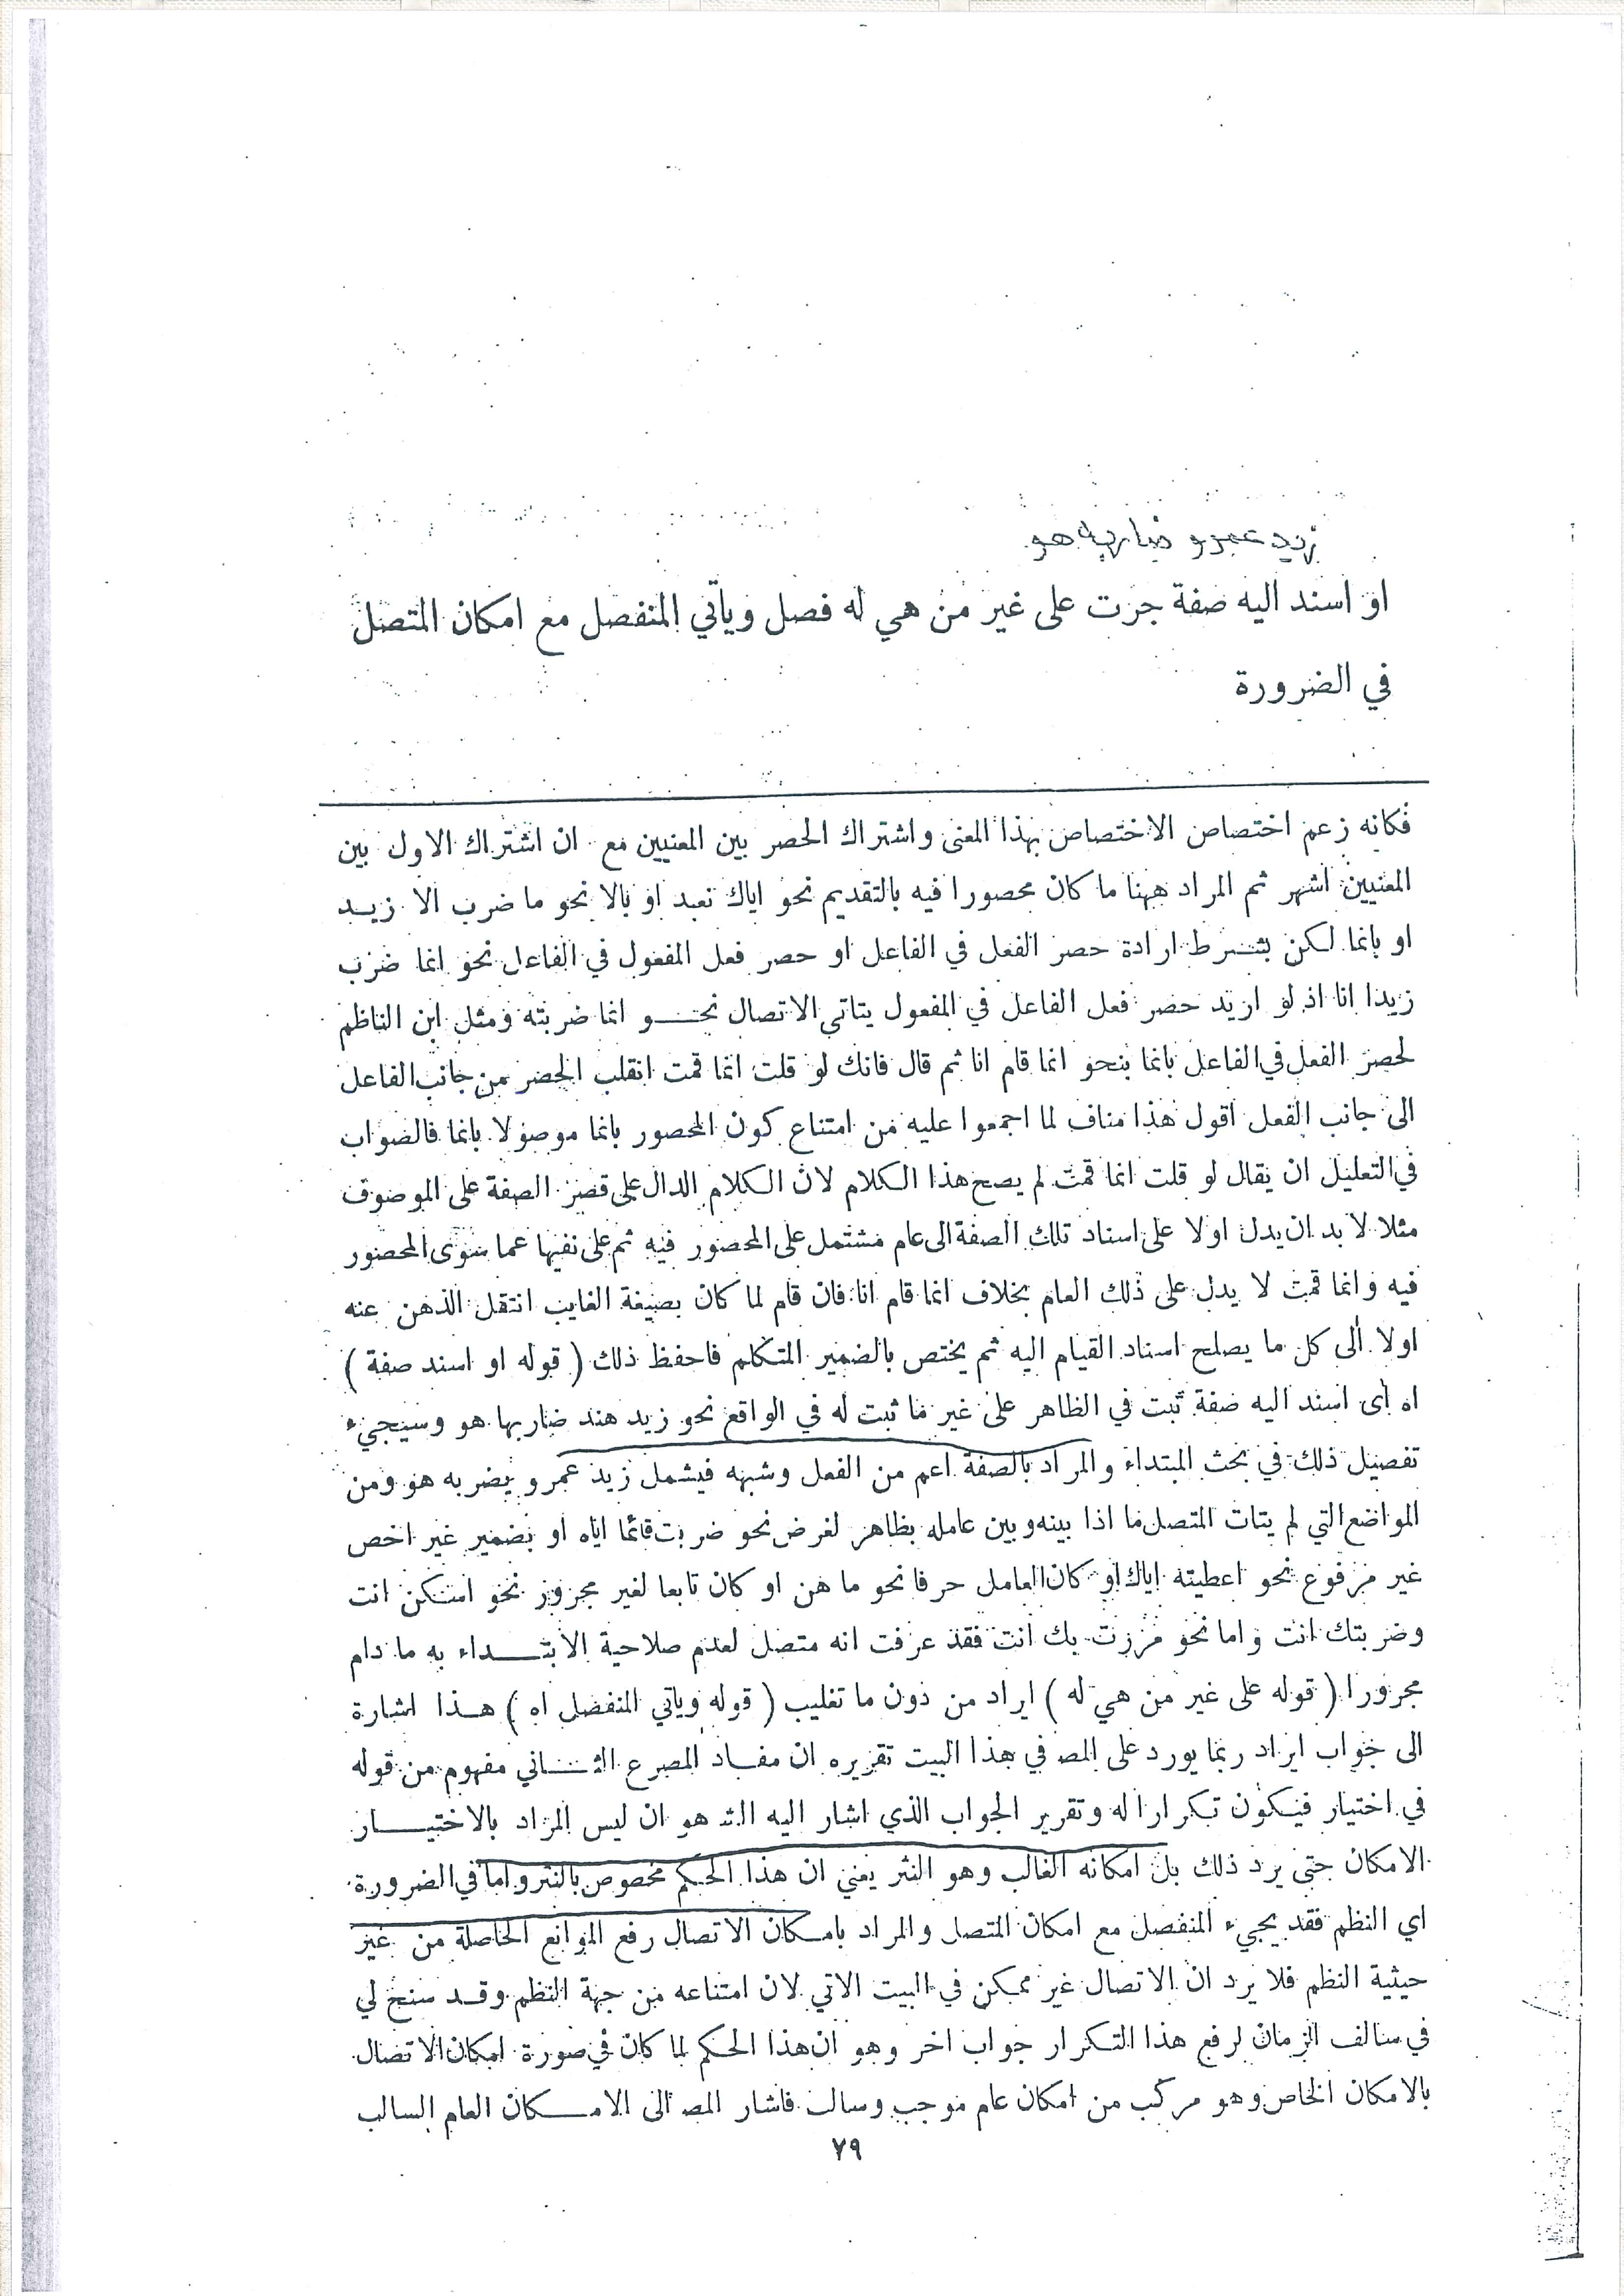 زيد عمرو ضاربه هو
او اسند اليه صفة جرت على غير من هي له فصل وياتي المنفصل مع امكان المتصل
في الضرورة
فكانه زعم اختصاص الاختصاص بهذا المعنى واشتراك الحصر بين المعنيين مع ان اشتراك الاول بين
المعنيين اشهر ثم المراد ههنا ما كان محصورا فيه بالتقديم نحو اياك نعبد او بالا نحو ما ضرب الا زيد
او بانما لكن بشرط ارادة حصر الفعل في الفاعل او حصر فعل المفعول في الفاعل نحو انما ضرب
زيدا انا اذ لو اريد حصر فعل الفاعل في المفعول يتاتى الاتصال نحو انما ضربته ومثل ابن الناظم
لحصر الفعل في الفاعل بانما بنحو انما قام انا ثم قال فانك لو قلت انما قمت انقلب الحصر من جانب الفاعل
الى جانب الفعل اقول هذا مناف لما اجمعوا عليه من امتناع كون المحصور بانما موصولا بانما فالصواب
في التعليل ان يقال لو قلت انما قمت لم يصح هذا الكلام لان الكلام الدال على قصر الصفة على الموصوف
مثلا لا بد ان يدل اولا على اسناد تلك الصفة الى عام مشتمل على المحصور فيه ثم على نفيها عما سوى المحصور
فيه وانما قمت لا يدل على ذلك العام بخلاف انما قام انا فان قام لما كان بصيغة الغايب انتقل الذهن عنه
اولا الى كل ما يصلح اسناد القيام اليه ثم يختص بالضمير المتكلم فاحفظ ذلك ( قوله او اسند صفة )
اه اى اسند اليه صفة ثبت في الظاهر على غير ما ثبت له في الواقع نحو زيد هند ضاربها هو وسيجيء
تفصيل ذلك في بحث المبتداء والمراد بالصفة اعم من الفعل وشبهه فيشمل زيد عمرو يضربه هو ومن
المواضع التي لم يتات المتصل ما اذا بينه وبين عامله بظاهر لغرض نحو ضربت قائما اياه او بضمير غير اخص
غير مرفوع نحو اعطيته اياك او كان العامل حرفا نحو ما هن او كان تابعا لغير مجرور نحو اسكن انت
وضربتك انت واما نحو مررت بك انت فقد عرفت انه متصل لعدم صلاحية الابتداء به ما دام
مجرورا ( قوله على غير من هي له ) ايراد من دون ما تغليب ( قوله وياتي المنفصل اه ) هذا اشارة
الى جواب ايراد ربما يورد على المصـ في هذا البيت تقريره ان مفاد المصرع الثاني مفهوم من قوله
في اختيار فيكون تكرارا له وتقرير الجواب الذي اشار اليه الشـ هو ان ليس المراد بالاختيار
الامكان حتى يرد ذلك بل امكانه الغالب وهو النثر يعني ان هذا الحكم مخصوص بالنثر واما في الضرورة
اي النظم فقد يجيء المنفصل مع امكان المتصل والمراد بامكان الاتصال رفع الموانع الحاصلة من غير
حيثية النظم فلا يرد ان الاتصال غير ممكن في البيت الاتي لان امتناعه من جهة النظم وقد سنح لي
في سالف الزمان لرفع هذا التكرار جواب اخر وهو ان هذا الحكم لما كان في صورة امكان الاتصال
بالامكان الخاص وهو مركب من امكان عام موجب وسالب فاشار المصـ الى الامكان العام السالب
٧٩